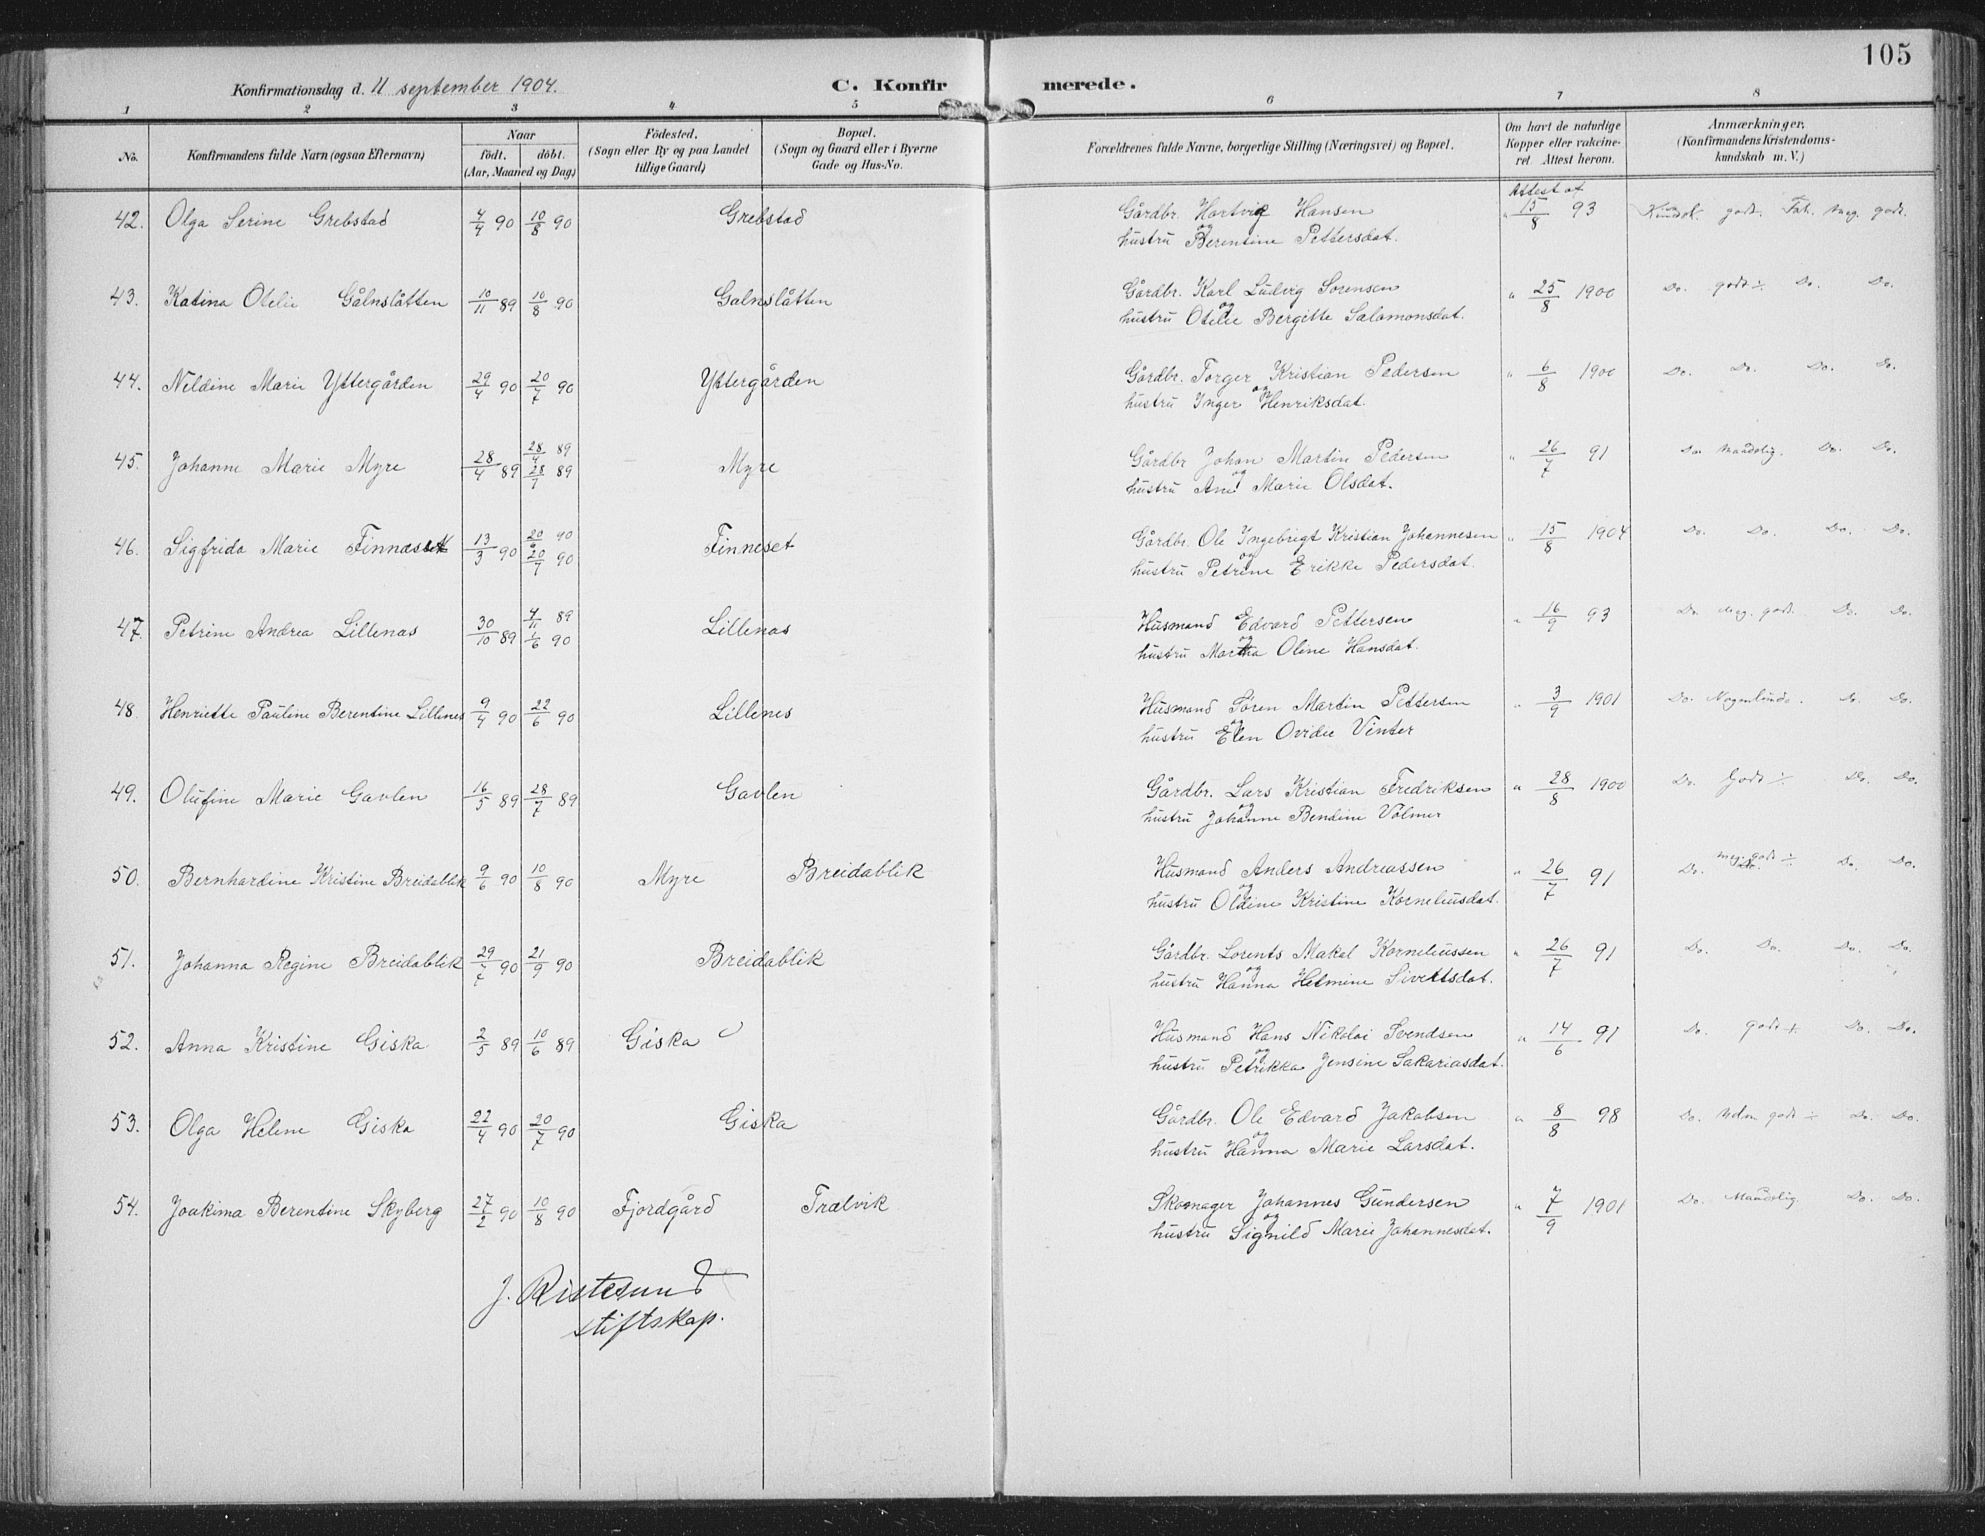 105
Konfirmationsdag d. 11 september 1904. C. Konfirmerede.
1 2 3 4 5 6 7 8
No. Konfirmandens fulde Navn (ogsaa Efternavn) Naar födt. döbt. (Aar, Maaned og Dag) Födested. (Sogn eller By og paa Landet tillige Gaard) Bopæl. (Sogn og Gaard eller i Byerne Gade og Hus-No. Forældrenes fulde Navne, borgerlige Stilling (Næringsvei) og Bopæl. Om havt de naturlige Kopper eller vakcineret. Attest herom. Anmærkninger. (Konfirmandens Kristendomskundskab m. V.)
Attest af
42. Olga Serine Grebstad 4/4 90 10/8 90 Grebstad Gårdbr. Hartvig Hansen " 15/8 93 Kundsk. godt. Fah. meg. godt.
og hustru Berentine Pettersdat.
43. Katina Otelie Gålnslåtten 10/11 89 10/8 90 Galnslåtten Gårdbr. Karl Ludvig Sorensen " 25/8 1900 Do. godt ÷ Do. Do.
og hustru Otelie Bergitte Salamonsdat.
44. Neldine Marie Yttergården 29/4 90 20/7 90 Yttergården Gårdbr. Torger Kristian Pedersen " 6/8 1900 Do. Do. Do. Do.
og hustru Inger Henriksdat.
45. Johanne Marie Myre 28/4 89 28/4 89 28/7 89 Myre Gårdbr Johan Martin Pedersen " 26/7 91 Do. Maadelig. Do. Do.
og hustru Ane Marie Olsdat.
46. Sigfrida Marie Finnæset 13/3 90 20/ 90 20/7 90 Finneset Gårdbr. Ole Ingebrigt Kristian Johannesen " 15/8 1904 Do. Do. Do. Do.
og hustru Petrine Erikke Pedersdat.
47. Petrine Andrea Lillenas 30/10 89 4/11 89 1/6 90 Lillenas Husmand Edvard Pettersen " 16/9 93 Do. meg. godt. Do. Do.
og hustru Martha Oline Hansdat.
48. Henriette Pauline Berentine Lillenes 9/4 90 22/6 90 Lillenes Husmand Søren Martin Pettersen " 3/9 1901 Do. Nogenlunde. Do. Do.
og hustru Elen Ovidie Vinter
49. Olufine Marie Gavlen 16/5 89 28/7 89 Gavlen Gårdbr. Lars Kristian Fredriksen " 28/8 1900 Do. Godt ÷ Do. Do.
og hustru Johanne Bendine Volmer
50. Bernhardine Kristine Breidablik 9/6 90 10/8 90 Myre Breidablik Husmand Anders Andreassen " 26/7 91 Do. meg. godt ÷ Do. Do.
og hustru Oldine Kristine Korneliusdat.
51. Johanna Regine Breidablik 29/7 90 21/9 90 Breidablik Gårdbr. Lorents Makal Korneliussen " 26/7 91 Do. Do. Do. Do.
og hustru Hanna Helmine Sivertsdat.
52. Anna Kristine Giska 2/5 89 10/6 89 Giska Husmand Hans Nikolai Svendsen " 14/6 91 Do. godt + Do. Do.
og hustru Petrikka Jensine Sakariasdat.
53. Olga Helene Giska 22/4 90 20/7 90 Giska Gårdbr. Ole Edvard Jakobsen " 8/8 98 Do. Uden godt ÷ Do. Do.
og hustru Hanna Marie Larsdat.
54. Joakima Berentine Skyberg 27/2 90 10/8 90 Fjordgård Trælvik Skomager Johannes Gundersen " 7/9 1901 Do. Maadelig Do. Do.
og hustru Signild Marie Johannesdat.
J. Ristesund
stiftskap.